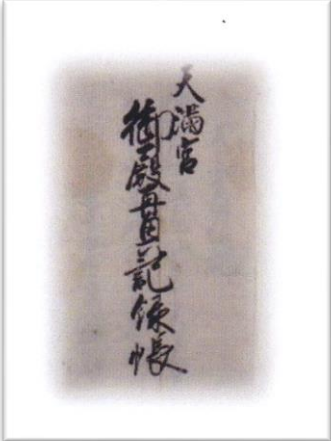 天満宮
御殿記録帳